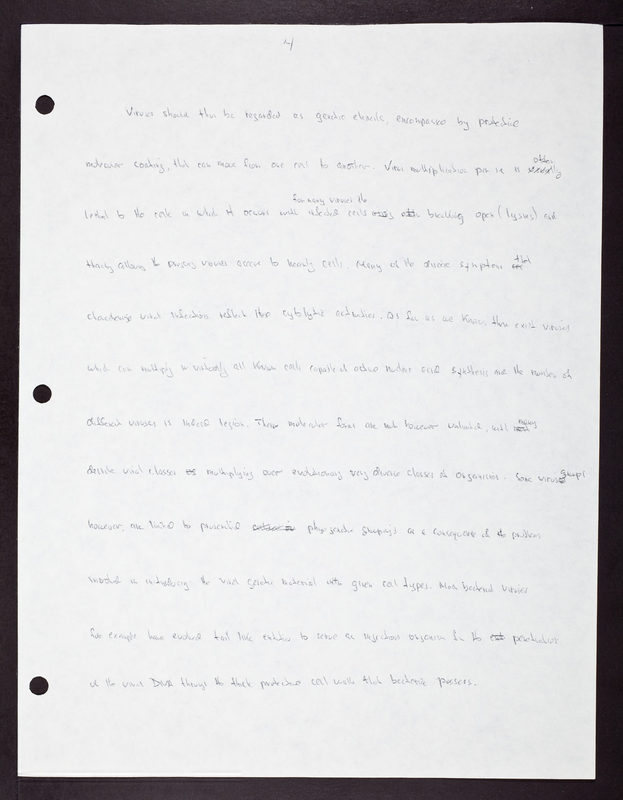 4
Viruses should thus be regarded as genetic elements, encompassed by protective
molecular coating, that can move from one cell to another. Virus multiplication per se is often
lethal to the cells in which it occurs with for many viruses the infected cells breaking open (lysis) and
thereby allowing the progeny viruses access to healthy cells. Many of the disease symptoms that
characterize viral infections reflect these cytolytic activities. As far as we know, there exist viruses
which can multiply in virtually all known cells capable of active nucleic acid synthesis and the number of
different viruses is indeed legion. Their molecular forms are not however unlimited, with many
viral classes multiplying over evolutionary very diverse classes of organisms. Some virus groups
however, are limited to phylogenetic groupings as a consequence of the problems
involved in introducing the viral genetic material into given cell types. Most bacterial viruses
for example have evolved tail like entities to serve as injection organs for the penetration
of the viral DNA through the thick protective cell walls that bacteria possess.